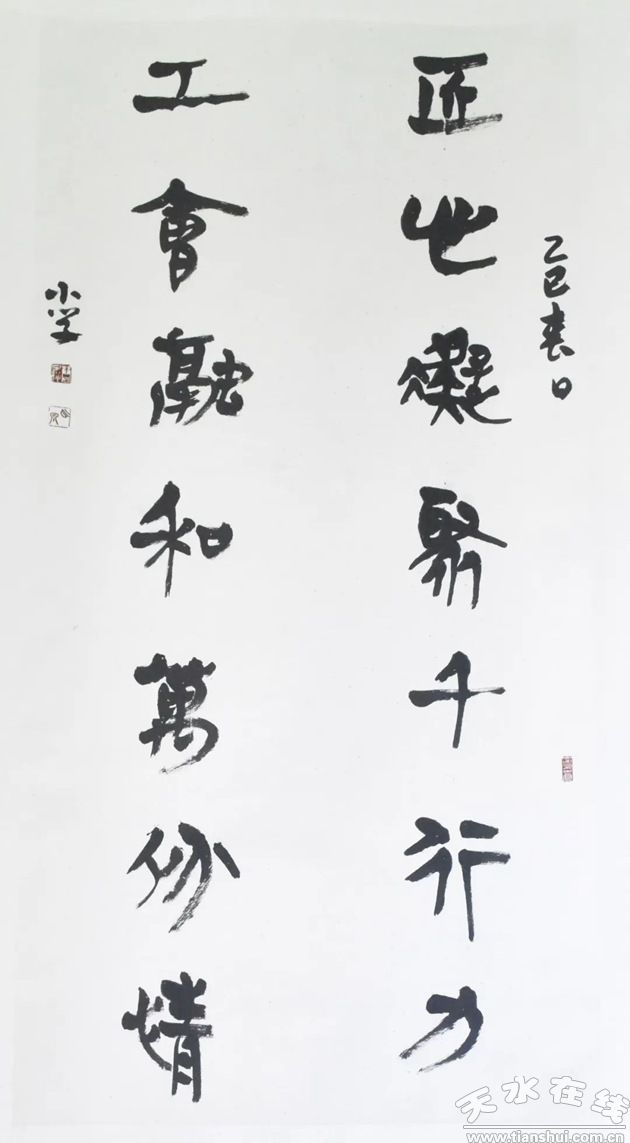 乙巳春日
匠心凝聚千行力
工會融和萬份情
天水在线
www.tianshui.com.cn